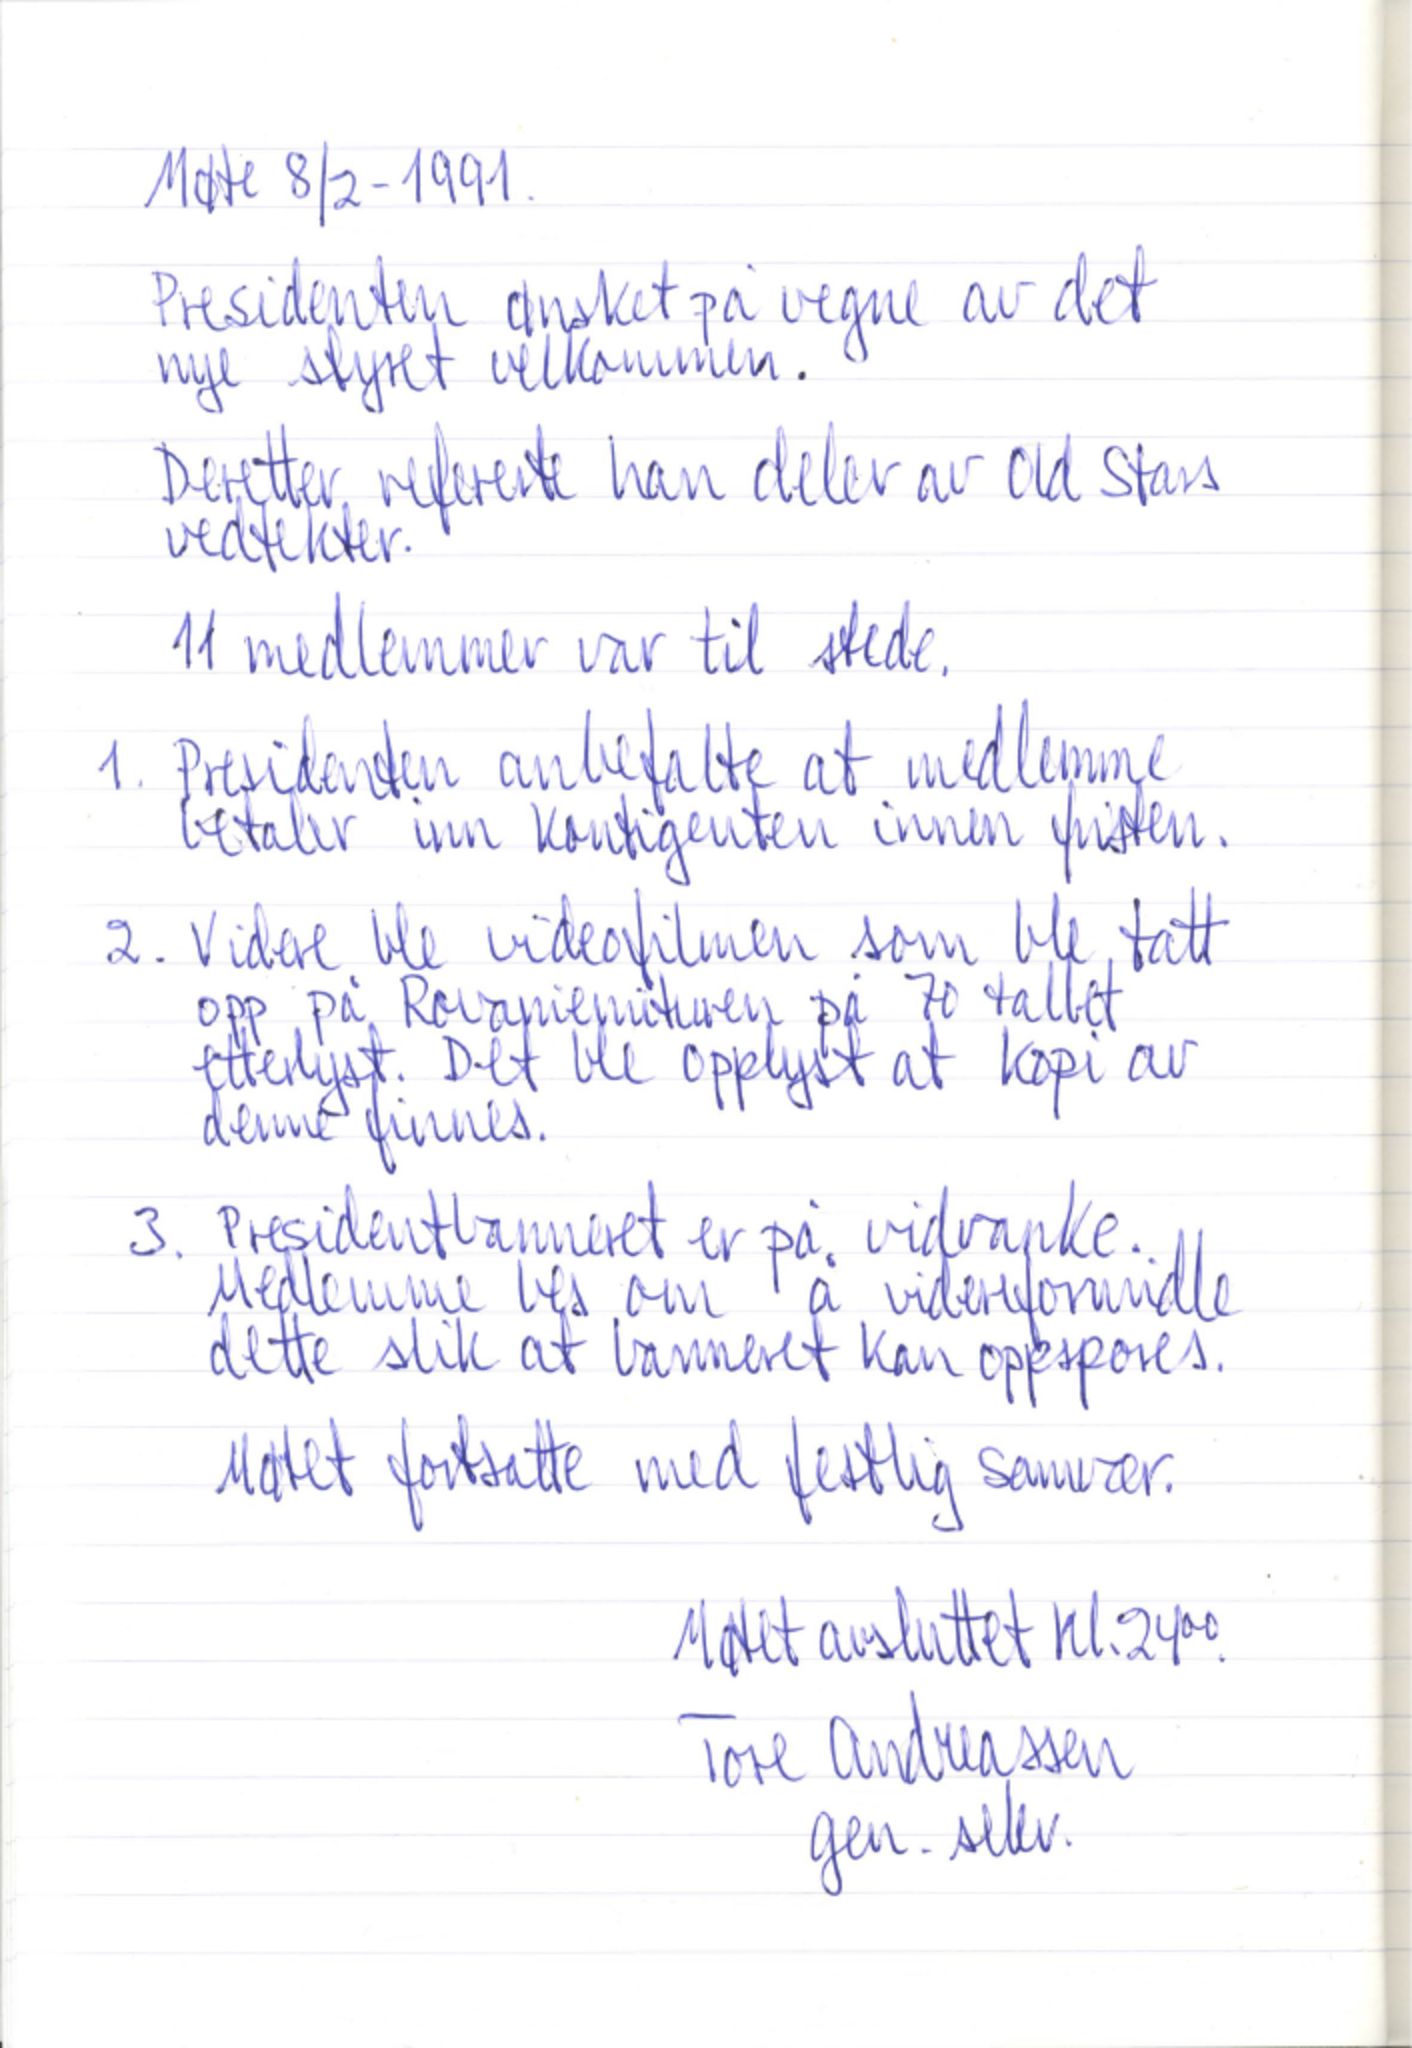 Møte 8/2-1991.
Presidenten ønsket på vegne av det
nye styret velkommen.
Deretter refererte han deler av Old Stars
vedtekter.
11 medlemmer var til stede.
1. Presidenten anbefalte at medlemme
betaler inn kontigenten innen fristen.
2. Videre ble videofilmen som ble tatt
opp på Rovaniemituren på 70 tallet
etterlyst. Det ble opplyst at kopi av
denne finnes.
3. Presidentbanneret er på vidvanke.
Medlemme bes om å videreformidle
dette slik at banneret kan oppspores.
Møtet fortsatte med festlig samvær.
Møtet avsluttet kl. 24⁰⁰.
Tore Andreassen
gen. sekr.